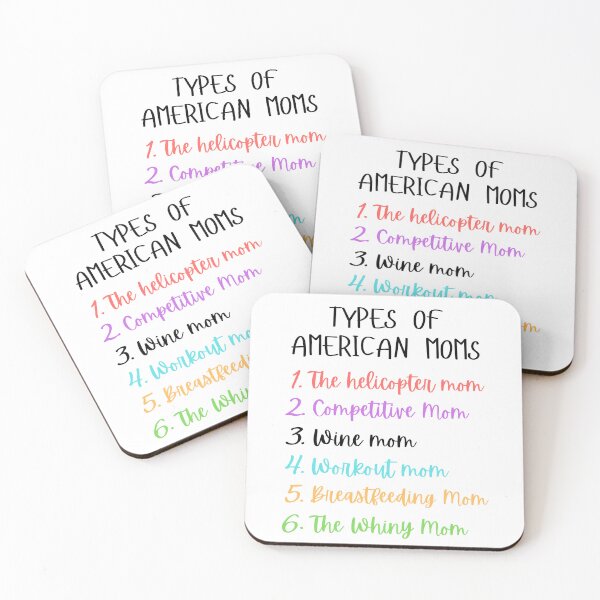 TYPES OF
AMERICAN MOMS
1. The helicopter mom
2. Competitive Mom
TYPES OF
AMERICAN MOMS
1. The helicopter mom
2. Competitive Mom
3. Wine mom
4. Workout mom
TYPES OF
AMERICAN MOMS
1. The helicopter mom
2. Competitive Mom
3. Wine mom
4. Workout mo
5. Breastfeeding
6. The Whiny
TYPES OF
AMERICAN MOMS
1. The helicopter mom
2. Competitive Mom
3. Wine mom
4. Workout mom
5. Breastfeeding Mom
6. The Whiny Mom